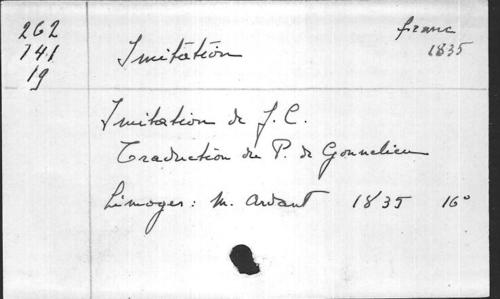 262
141
19
Imitation
franc
1835
Imitation de J. C.
Traduction du P. de Gonnelieu
Limoges: M. Ardant 1835 16°